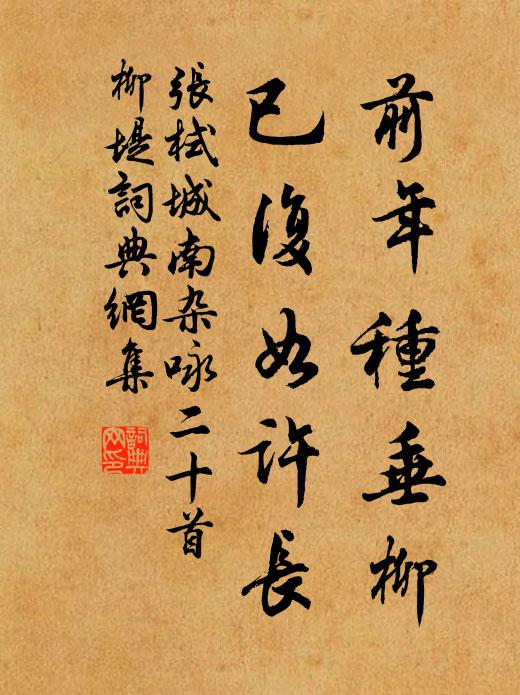 前年種垂柳
已復如許長
張栻城南杂咏二十首
柳堤詞典網集
詞典网印